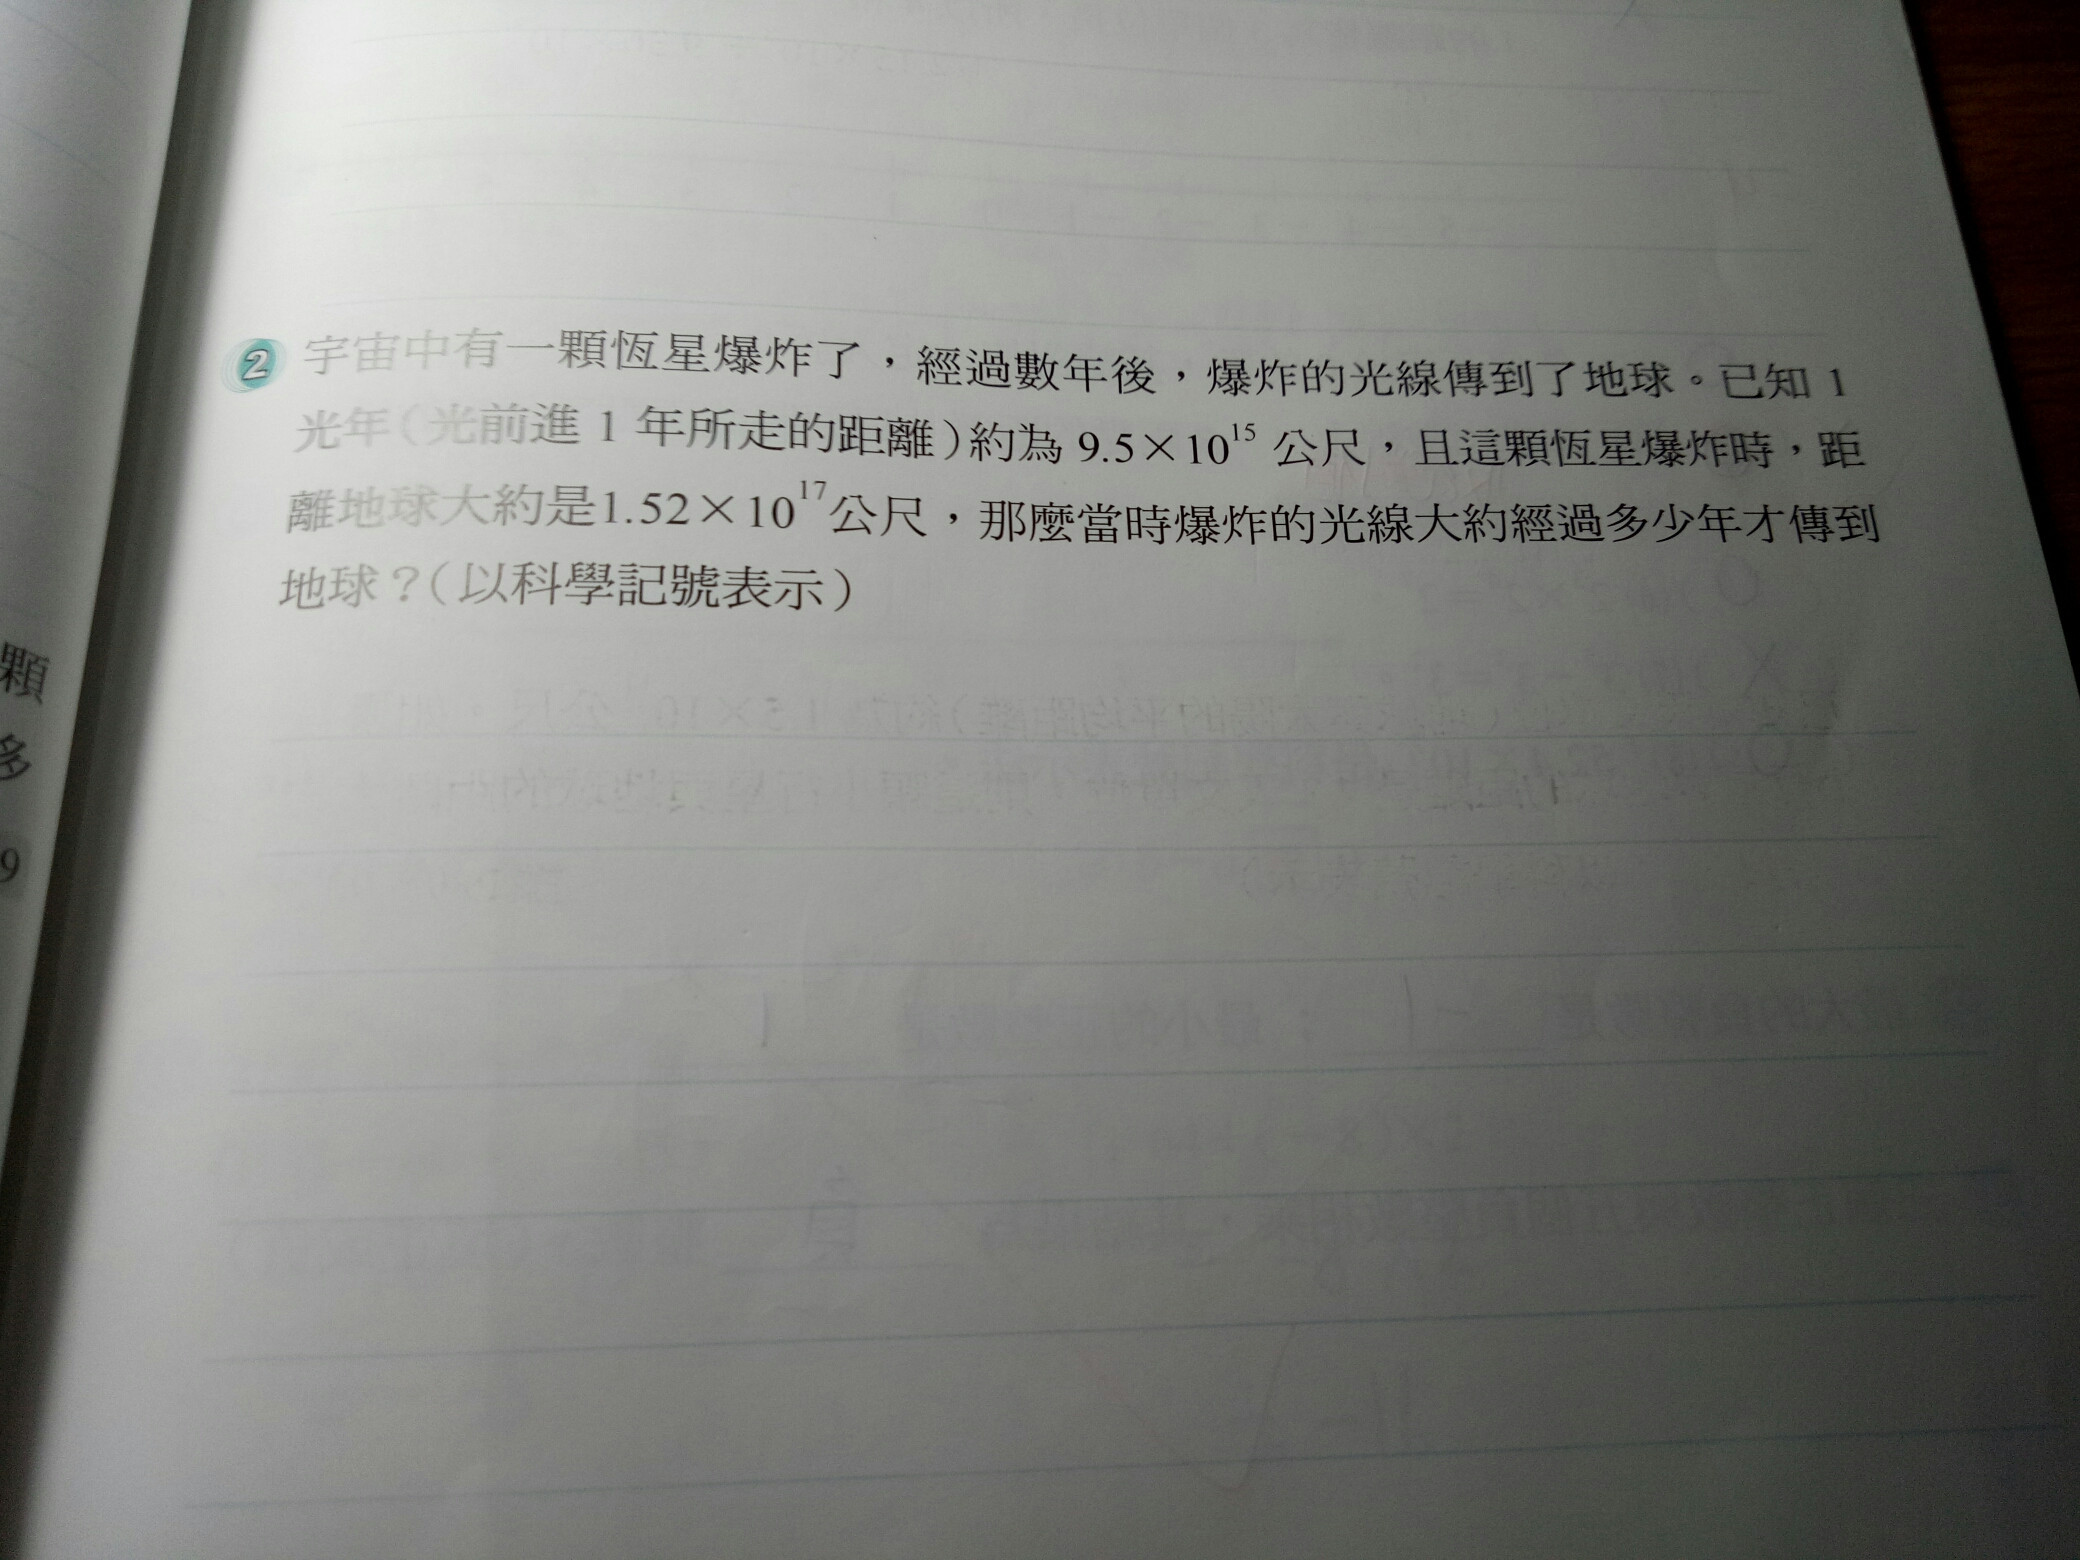 2 宇宙中有一顆恆星爆炸了，經過數年後，爆炸的光線傳到了地球。已知 1
光年(光前進 1 年所走的距離)約為 9.5×10¹⁵ 公尺，且這顆恆星爆炸時，距
離地球大約是1.52×10¹⁷公尺，那麼當時爆炸的光線大約經過多少年才傳到
地球？(以科學記號表示)
顆
多
9